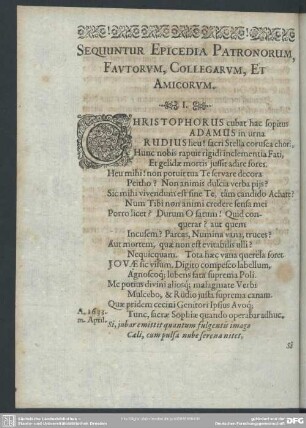 SEQUUNTUR EPICEDIA PATRONORUM,
FAVTORVM, COLLEGARVM, ET
AMICORVM.
I.
CHRISTOPHORUS cubat hac sopitus
ADAMUS in urna
RUDIUS heu! sacri Stella corusca chori,
Hunc nobis rapuit rigidi inclementia Fati,
Et gelidæ mortis jussit adire fores.
Heu mihi! non potuit mâ Te servare decora
Peitho? Non animis dulcia verba pijs?
Sic mihi vivendum est sine Te, tàm candido Achate?
Num Tibi non animi credere sensa mei
Porro licet? Durum O fatum! Quid con-
querar? aut quem
Incusem? Parcas, Numina vana, truces?
Aut mortem, quæ non est evitabilis ulli?
Nequicquam. Tota hæc vana querela foret
JOVÆ sic visum. Digito compesco labellum,
Agnoscoq; lubens fata suprema Poli.
Me potiùs divini alioq; malagmate Verbi
Mulcebo, & Rudio justa suprema canam.
Quæ pridem cecini Genitori Ipsius Avoq;
Tunc, sacræ Sophiæ quando operabar adhuc.
m. April.
Si, jubar emittit quantum fulgentis imago
Cæli, cùm pulsâ nube serena nitet,